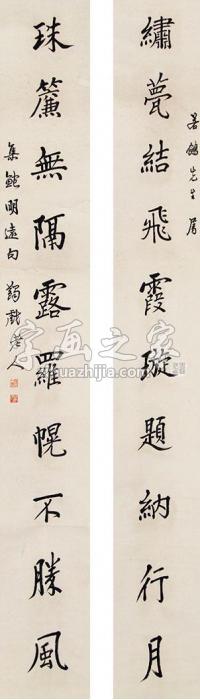 繡甍結飛霞璇題納行月
鶴先生屬
珠簾無隔露羅幌不勝風
集鮑明遠句
老人
字画之家